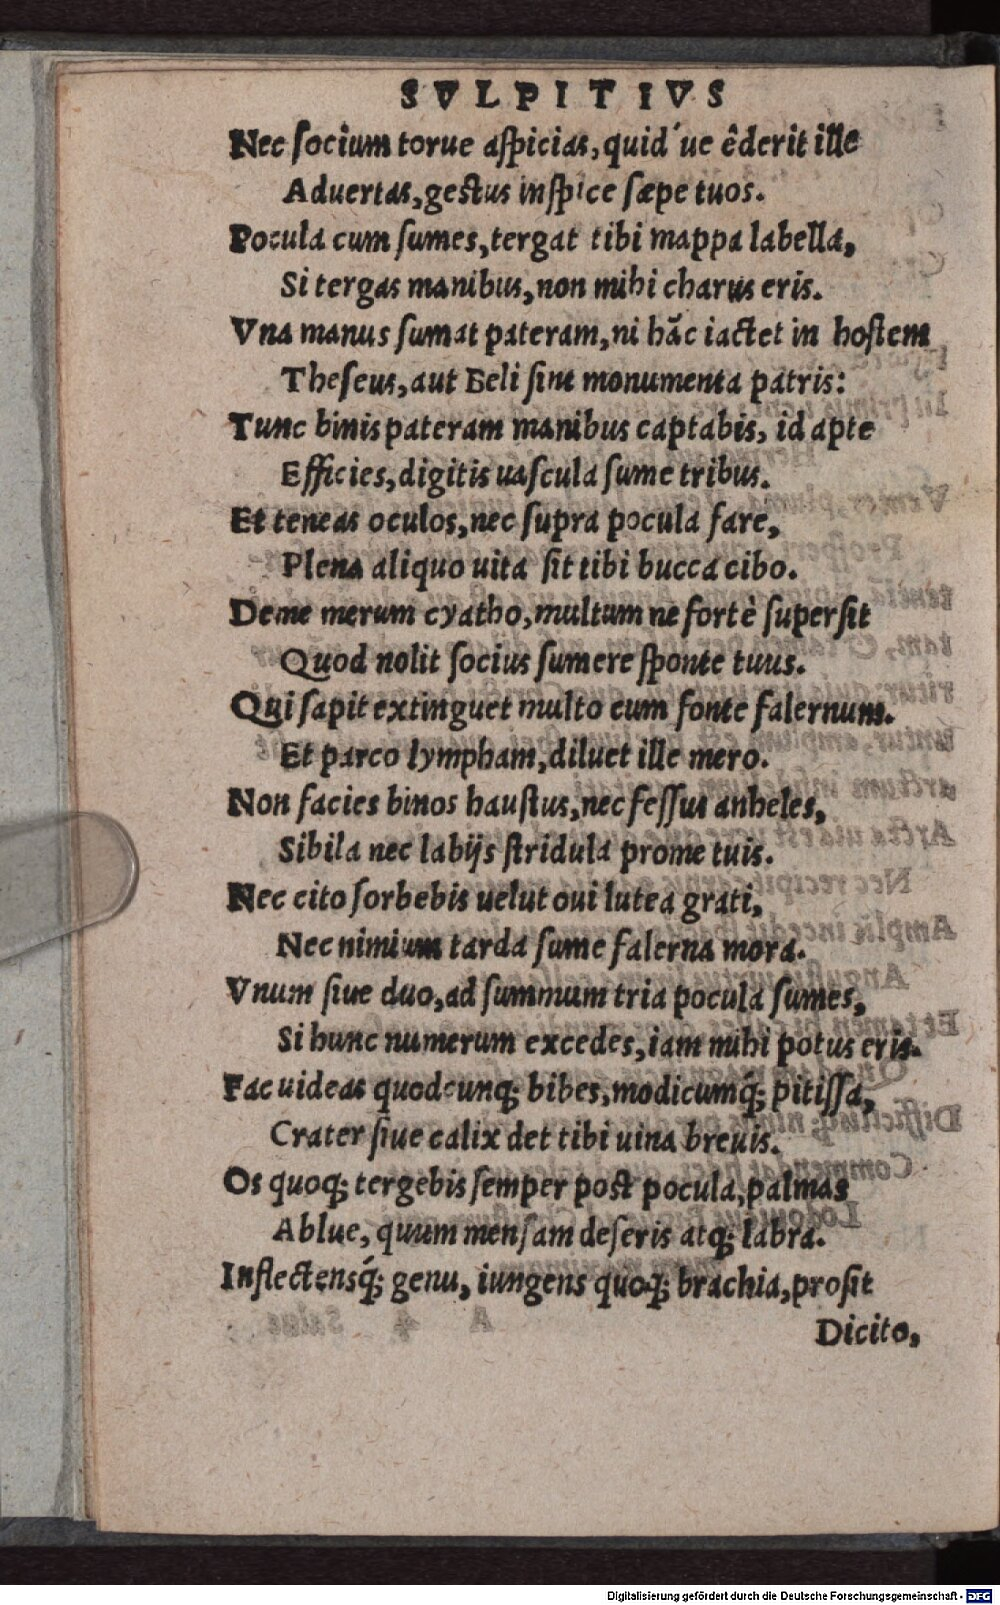 SVLPITIVS
Nec ſocium torue aſpicias, quid'ue êderit ille
Aduertas, geſtus inſpice ſæpe tuos.
Pocula cum ſumes, tergat tibi mappa labella,
Si tergas manibus, non mihi charus eris.
Vna manus ſumat pateram, ni hãc iactet in hoſtem
Theſeus, aut Beli ſint monumenta patris:
Tunc binis pateram manibus captabis, id apte
Efficies, digitis uaſcula ſume tribus.
Et teneas oculos, nec ſupra pocula fare,
Plena aliquo uita ſit tibi bucca cibo.
Deme merum cyatho, multum ne fortè ſuperſit
Quod nolit ſocius ſumere ſponte tuus.
Qui ſapit extinguet multo eum fonte falernum.
Et parco lympham, diluet ille mero.
Non facies binos hauſtus, nec feſſus anheles,
Sibila nec labijs ſtridula prome tuis.
Nec cito ſorbebis uelut oui lutea grati,
Nec nimium tarda ſume falerna mora.
Vnum ſiue duo, ad ſummum tria pocula ſumes,
Si hunc numerum excedes, iam mihi potus eris.
Fac uideas quodcunq; bibes, modicumq́; pitiſſa,
Crater ſiue calix det tibi uina breuis.
Os quoq; tergebis ſemper poſt pocula, palmas
Ablue, quum menſam deſeris atq; labra.
Inflectensq́; genu, iungens quoq; brachia, proſit
Dicito,
Digitalisierung gefördert durch die Deutsche Forschungsgemeinschaft - DFG